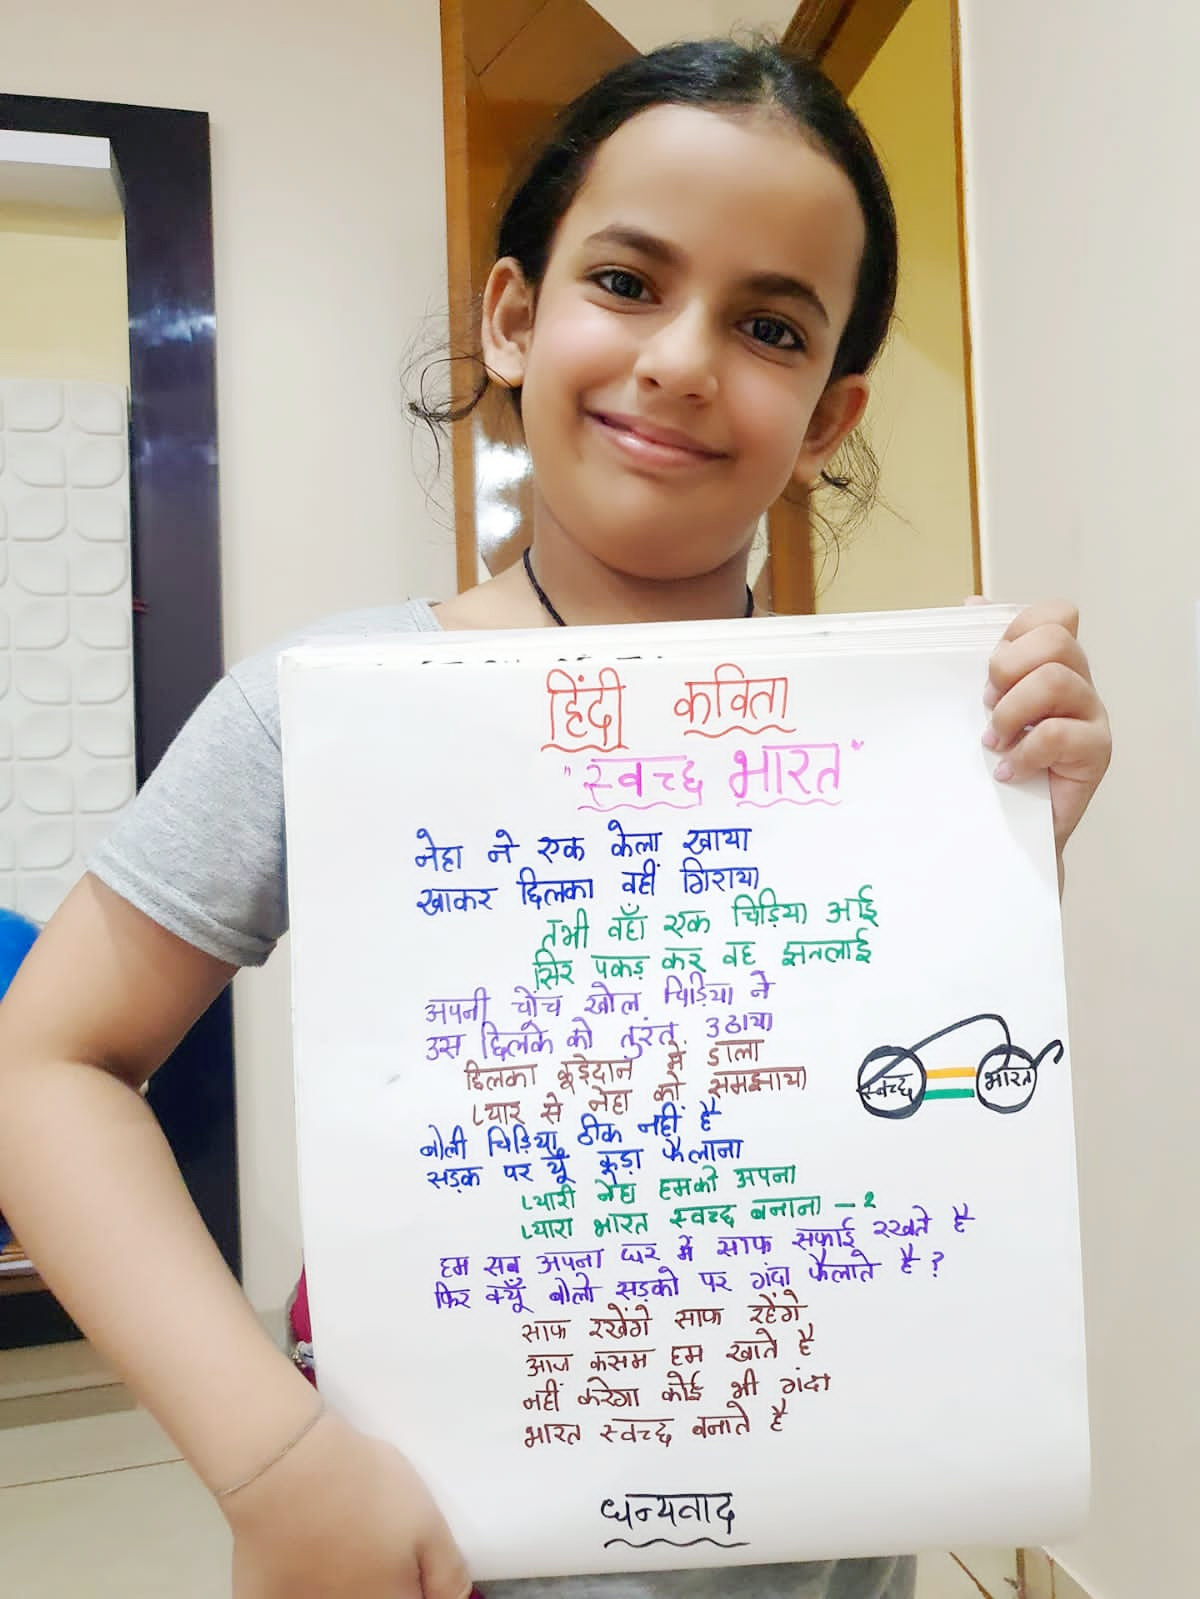 हिंदी कविता
"स्वच्छ भारत"
नेहा ने एक केला खाया
खाकर छिलका वहीं गिराया
तभी वहाँ एक चिड़िया आई
सिर पकड़ कर वह झनलाई
अपनी चोंच खोल चिड़िया ने
उस छिलके को तुरंत उठाया
छिलका कूड़ेदान में डाला
प्यार से नेहा को समझाया
बोली चिड़िया ठीक नहीं है
सड़क पर यूँ कूड़ा फैलाना
प्यारी नेहा हमको अपना
प्यारा भारत स्वच्छ बनाना - 2
हम सब अपना घर में साफ सफाई रखते है
फिर क्यूँ बोलो सड़को पर गंदा फैलाते है ?
साफ रखेंगे साफ रहेंगे
आज कसम हम खाते है
नहीं करेगा कोई भी गंदा
भारत स्वच्छ बनाते है
स्वच्छ भारत
धन्यवाद